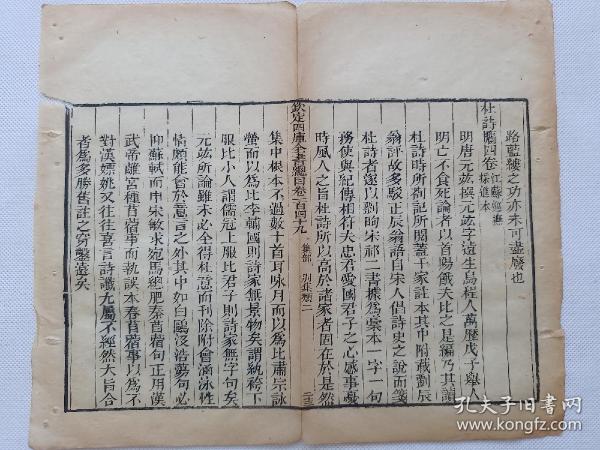 路藍縷之功亦未可盡廢也
杜詩攟四卷 江蘇巡撫採進本
明唐元竑撰元竑字遠生烏程人萬歷戊子舉
明亡不食死論者以首陽餓夫比之是編乃其讀
杜詩時所劄記所閱蓋千家註本其中附載劉辰
翁評故多駁正辰翁語自宋人倡詩史之說而箋
杜詩者遂以劉昫宋祁二書據為稾本一字一句
務使與紀傳相符夫忠君愛國君子之心感事憂
時風人之旨杜詩所以高於諸家者固在於是然
欽定四庫全書總目卷一百四十九 集部 別集類二
集中根本不過數十首耳咏月而以為比肅宗詠
螢而以為比李輔國則詩家無景物矣謂紈袴下
服比小人謂儒冠上服比君子則詩家無字句矣
元竑所論雖未必全得杜意而刊除附會涵泳性
情頗能會於意言之外其中如白鷗沒浩蕩句必
抑蘇軾而申宋敏求宛馬總肥秦苜蓿句正用漢
武帝離宮種苜蓿事而執誤本春苜蓿字以為不
對漢嫖姚又往往喜言詩讖尤屬不經然大旨合
者為多勝舊註之穿鑿遠矣
孔夫子旧书网
www.kongfz.com